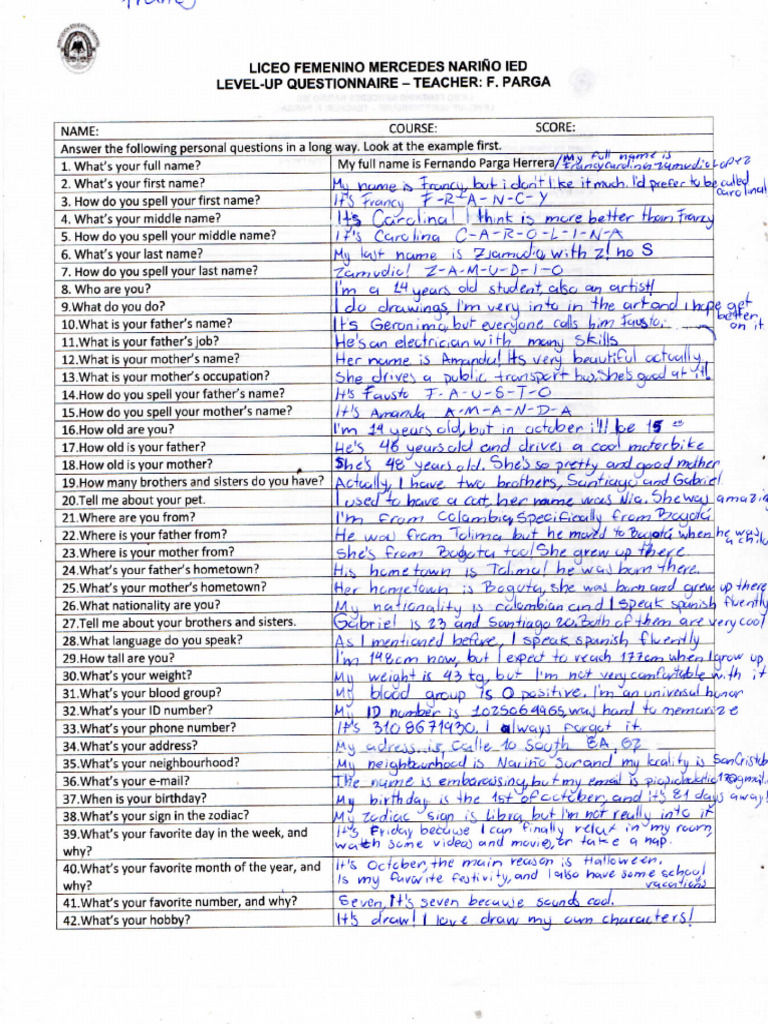 Francy
LICEO FEMENINO MERCEDES NARIÑO IED
LEVEL-UP QUESTIONNAIRE – TEACHER: F. PARGA
NAME: COURSE: SCORE:
Answer the following personal questions in a long way. Look at the example first.
1. What's your full name? My full name is Fernando Parga Herrera/My full name is Francy Carolina Zamudio Lopez
2. What's your first name? My name is Francy, but i don't like it much. I'd prefer to be called carolina!
3. How do you spell your first name? It's Francy F-R-A-N-C-Y
4. What's your middle name? It's Carolina! I think is more better than Francy
5. How do you spell your middle name? It's Carolina C-A-R-O-L-I-N-A
6. What's your last name? My last name is Zamudio, with z! no S
7. How do you spell your last name? Zamudio! Z-A-M-U-D-I-O
8. Who are you? I'm a 14 years old student, also an artist!
9.What do you do? I do drawings, I'm very into in the art and i hope get better on it
10.What is your father's name? It's Geronimo, but everyone calls him Fausto.
11.What's your father's job? He's an electrician with many skills
12.What is your mother's name? Her name is Amanda! Its very beautiful actually
13.What is your mother's occupation? She drives a public transport bus. She's good at it!
14.How do you spell your father's name? It's Fausto F-A-U-S-T-O
15.How do you spell your mother's name? It's Amanda A-M-A-N-D-A
16.How old are you? I'm 14 years old, but in october i'll be 15
17.How old is your father? He's 46 years old and drives a cool motorbike
18.How old is your mother? She's 48 years old. She's so pretty and good mother
19.How many brothers and sisters do you have? Actually, I have two brothers, Santiago and Gabriel
20.Tell me about your pet. I used to have a cat, her name was Nia. She was amazing
21.Where are you from? I'm from Colombia, Specifically from Bogotá
22.Where is your father from? He was from Tolima but he moved to Bogotá when he was a child
23.Where is your mother from? She's from Bogota too! She grew up there.
24.What's your father's hometown? His hometown is Tolima! he was born there.
25.What's your mother's hometown? Her hometown is Bogota, she was born and grew up there
26.What nationality are you? My nationality is colombian and I speak spanish fluently
27.Tell me about your brothers and sisters. Gabriel is 23 and Santiago 20. Both of them are very cool
28.What language do you speak? As I mentioned before, I speak spanish fluently
29.How tall are you? I'm 148cm now, but I expect to reach 177cm when I grow up
30.What's your weight? My weight is 43 kg, but I'm not very comfortable with it
31.What's your blood group? My blood group is O positive. I'm an universal donor
32.What's your ID number? My ID number is 1025064965, was hard to memorize
33.What's your phone number? It's 3108671930. I always forgot it.
34.What's your address? My adress is, Calle 10 South 8A, 62
35.What's your neighbourhood? My neighbourhood is Nariño Sur and my locality is San Cristobal
36.What's your e-mail? The name is embarassing, but my email is
37.When is your birthday? My birthday is the 1st of october, and it's 81 days away!
38.What's your sign in the zodiac? My Zodiac sign is Libra, but I'm not really into it
39.What's your favorite day in the week, and why? It's Friday because I can finally relax in my room,
watch some videos and movies, or take a nap.
40.What's your favorite month of the year, and why? It's October, the main reason is Halloween.
Is my favorite festivity, and I also have some school vacations
41.What's your favorite number, and why? Seven, It's seven because sounds cool.
42.What's your hobby? It's draw! I love draw my own characters!